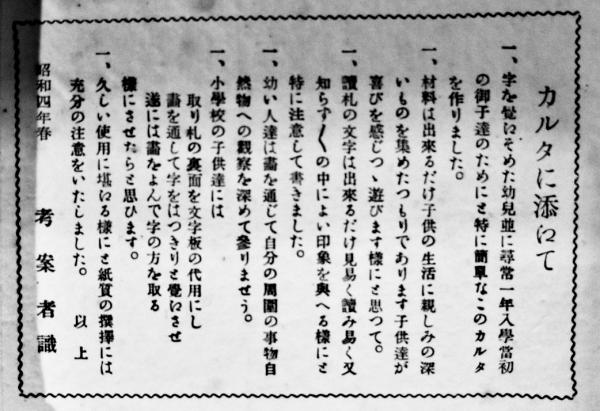 カルタに添へて
一、字を覺えそめた幼兒並に尋常一年入學當初
の御子達のためにと特に簡單なこのカルタ
を作りました。
一、材料は出來るだけ子供の生活に親しみの深
いものを集めたつもりであります子供達が
喜びを感じつゝ遊びます樣にと思つて。
一、讀札の文字は出來るだけ見易く讀み易く又
知らず〱の中によい印象を與へる樣にと
特に注意して書きました。
一、幼い人達は畵を通じて自分の周圍の事物自
然物への觀察を深めて參りませう。
一、小學校の子供達には
取り札の裏面を文字板の代用にし
畵を通して字をはつきりと覺えさせ
遂には畵をよんで字の方を取る
樣にさせたらと思ひます。
一、久しい使用に堪える樣にと紙質の撰擇には
充分の注意をいたしました。 以上
昭和四年春 考案者識